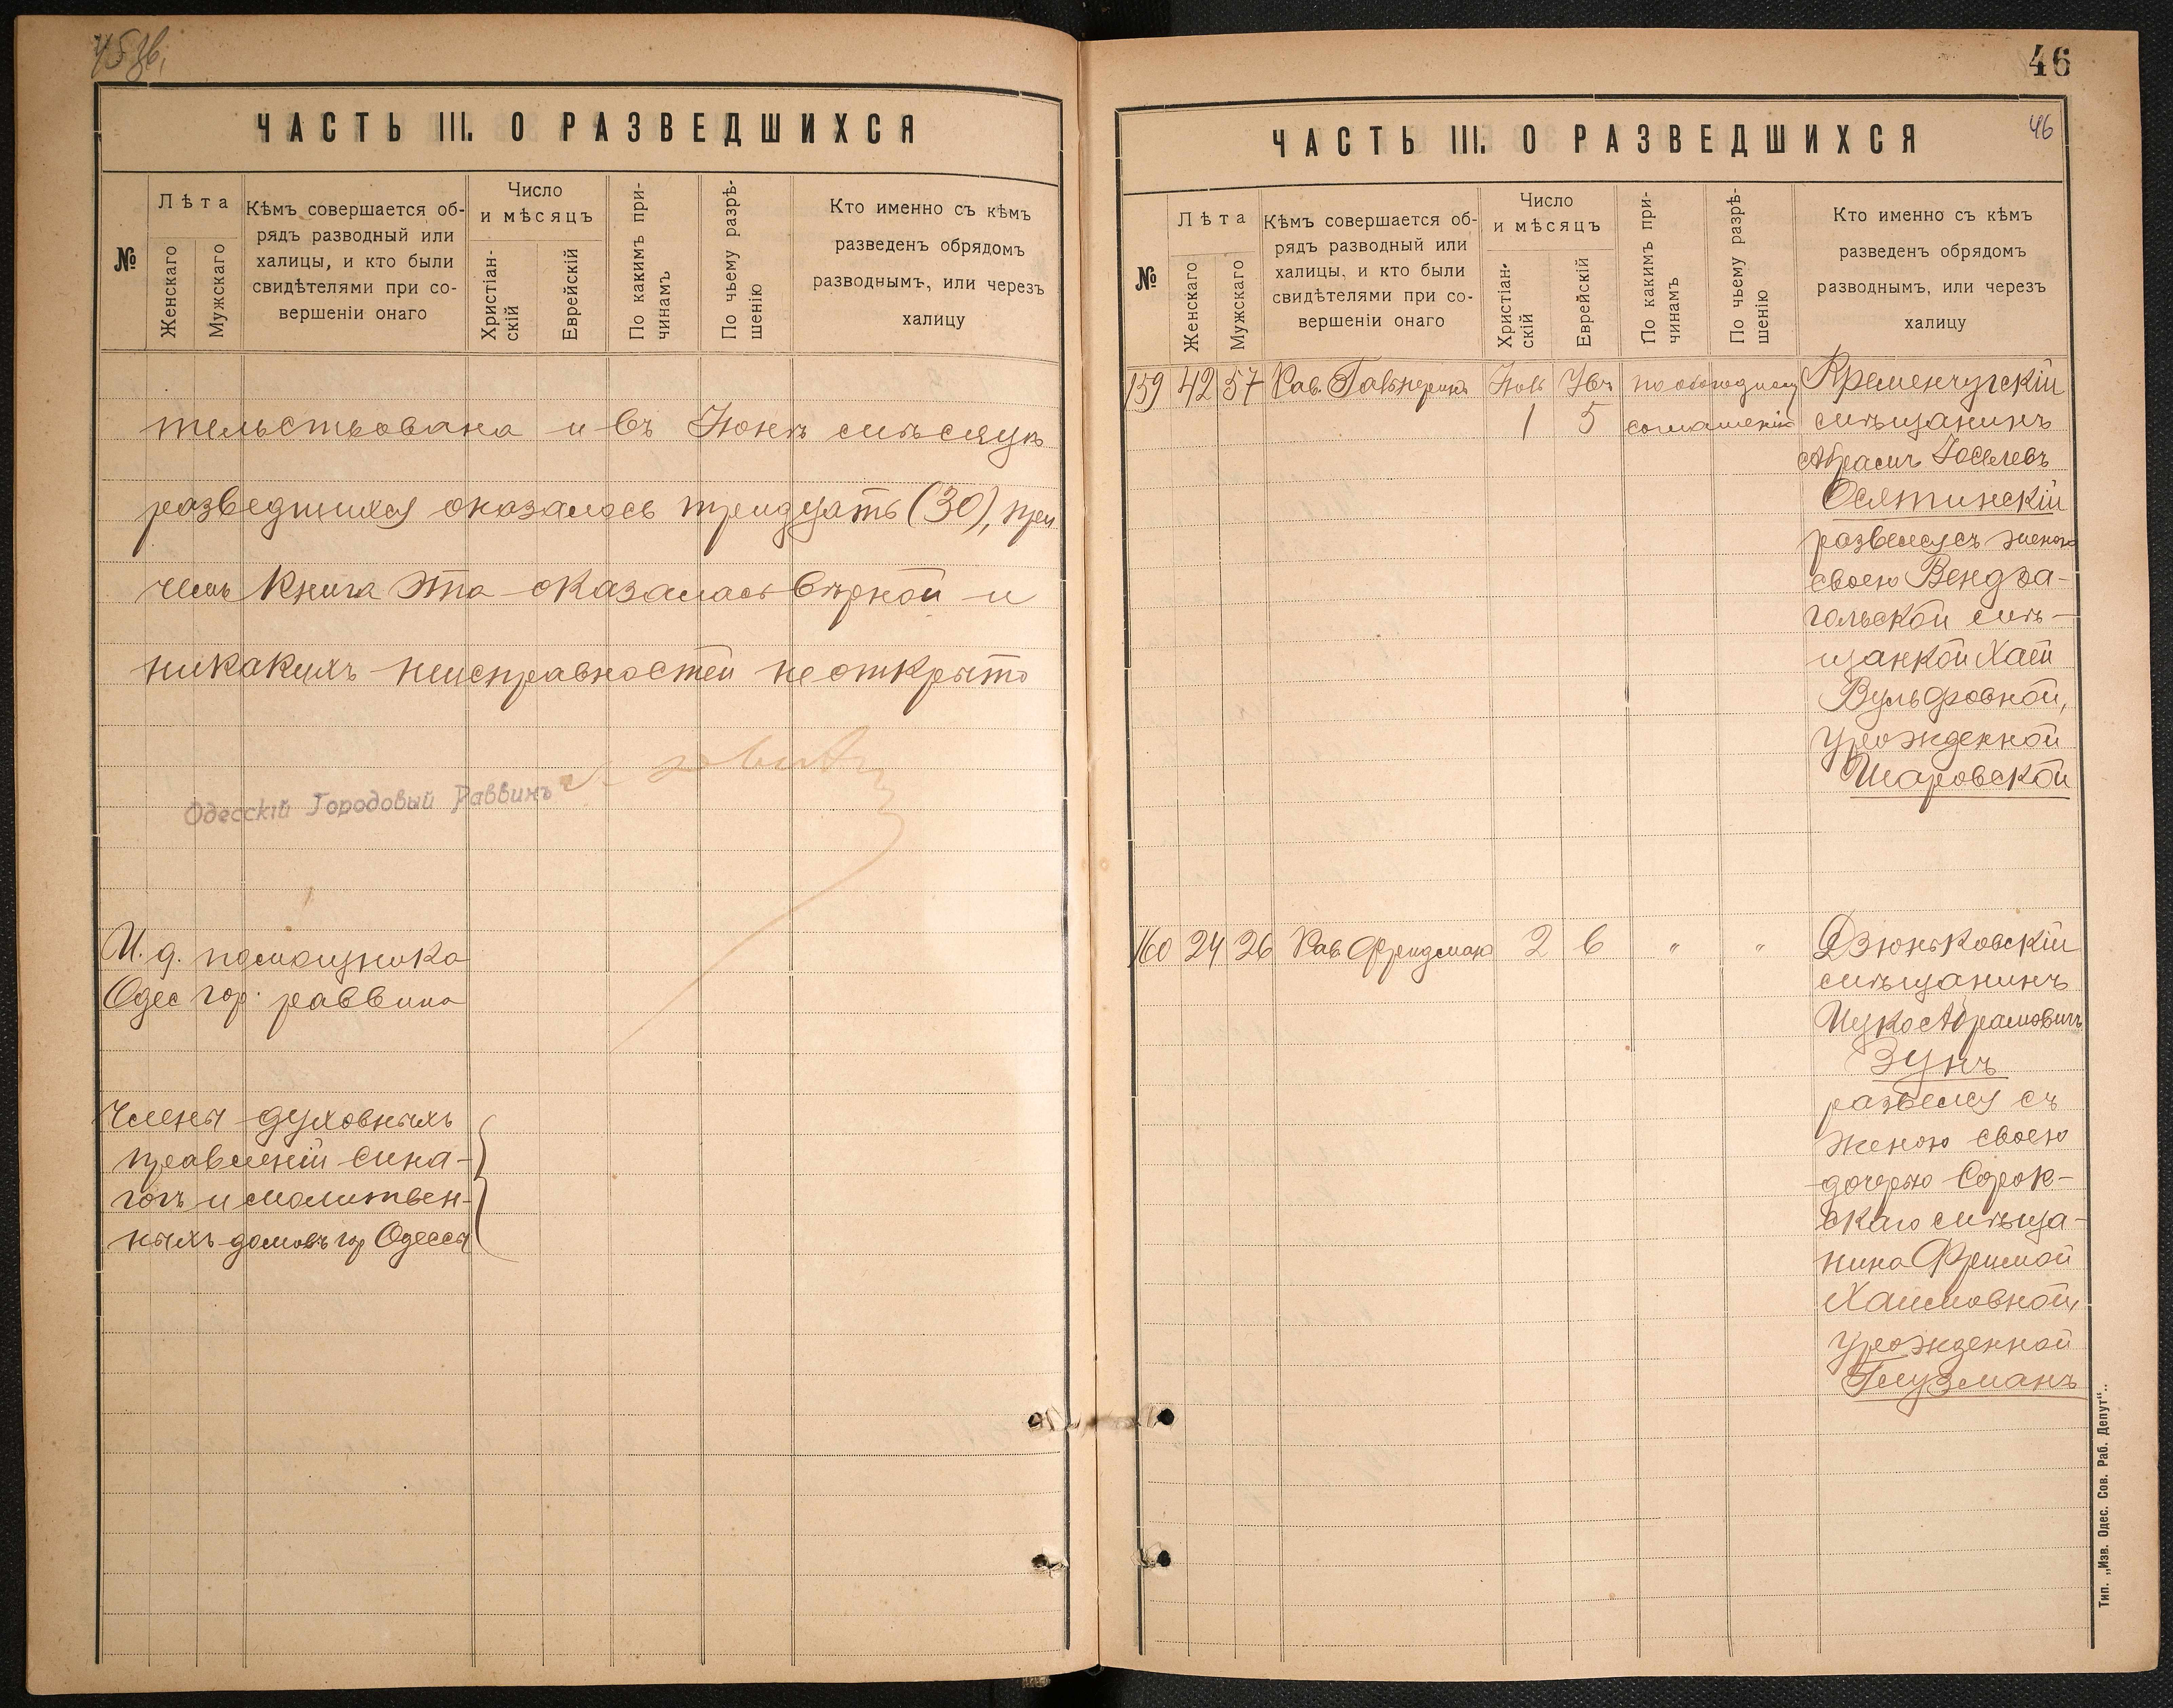 46
ЧАСТЬ III. О РАЗВЕДШИХСЯ
№
Лѣта
Женскаго
Мужскаго
Кѣмъ совершается об-
рядъ разводный или
халицы, и кто были
свидѣтелями при со-
вершеніи онаго
Число
и мѣсяцъ
Христіан-
скій
Еврейскій
По какимъ при-
чинамъ
По чьему разрѣ-
шенію
Кто именно съ кѣмъ
разведенъ обрядомъ
разводнымъ, или черезъ
халицу
тельствована и въ Іюнѣ мѣсяцѣ
разведшихся оказалось тридцать (30), при
чемъ книга эта оказалась вѣрной и
никакихъ неисправностей не открыто
Одесскій Городовый Раввинъ
И. д. помощника
Одес гор. раввина
Члены духовныхъ
правленій сина-
гогъ и молитвен-
ныхъ домовъ гор Одессы
ЧАСТЬ III. О РАЗВЕДШИХСЯ
46
№
Лѣта
Женскаго
Мужскаго
Кѣмъ совершается об-
рядъ разводный или
халицы, и кто были
свидѣтелями при со-
вершеніи онаго
Число
и мѣсяцъ
Христіан-
скій
Еврейскій
По какимъ при-
чинамъ
По чьему разрѣ-
шенію
Кто именно съ кѣмъ
разведенъ обрядомъ
разводнымъ, или черезъ
халицу
159 42 57 Рав. Гальперинъ по обоюдному Кременчугскій
1 5 соглашенію мѣщанинъ
Абрамъ Іоселевъ
Осятинскій
развелся съ женою
своею Вендза-
гольской мѣ-
щанкой Хаей
Вульфовной,
урожденной
Шаровской
160 24 26 Рав. Фридман 2 6 " " Дзюньковскій
мѣщанинъ
Ицко Абрамовичъ
Зунъ
развелся съ
женою своею
дочерью Сорок-
скаго мѣща-
нина Фримой
Хаимовной,
урожденной
Глузманъ
Тип. „Изв. Одес. Сов. Раб. Депут“.